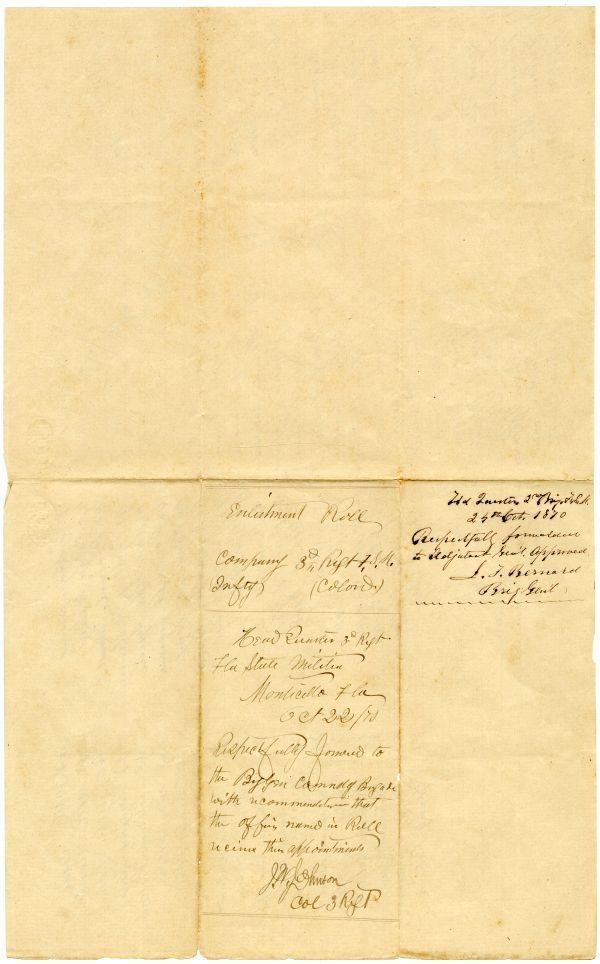 Enlistment Roll
Company 3d Regt F. S. M.
Infty (Colord.)
Head Quarters 3d Regt
Fla State Militia
Monticello Fla
Oct 22/70
Respectfully forward to
the Bg Gen Comndg Brigade
with recommendation that
the officers named in Roll
receive their appointments
J. W. Johnson
Col 3 Regt
Hd Quarters 2d Brig F.S.M.
24th Oct. 1870
Respectfully forwarded
to Adjutant Genl. Approved
J. T. Bernard
Brig Genl.